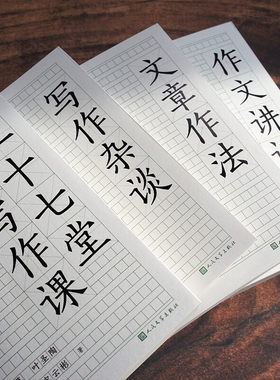 十七堂
写作课
叶圣陶
云彬 著
写作杂谈
人民文学出版社
文章作法
人民文学出版社
作文讲